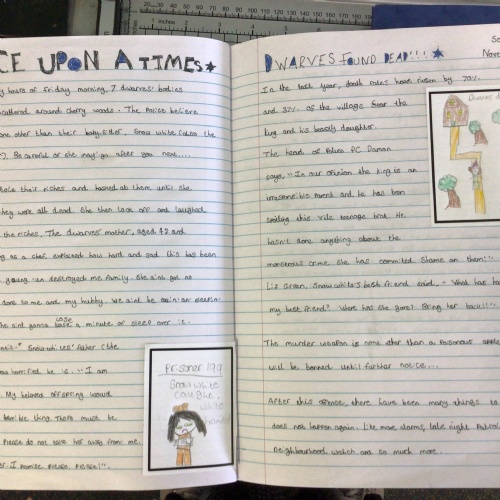 CE UPON A TIMES
y hours of Friday morning, 7 dwarves' bodies
scattered around cherry woods. The Police believe
one other than their babysitter, Snow white (also the
). Be careful or she may go after you next....
stole their riches and hacked at them until she
they were all dead. She then took off and laughed
the riches. The dwarves' mother, aged 42 and
g as a chef, explained how hard and sad this has been
young 'un destroyed me family. She aint got no
done to me and my hubby. We aint be
She aint gonna lose a minute of sleep over it.
Snow whites' father (the
how horrified he is. "I am
. My beloved offspring would
terrible thing. There must be
Please do not take her away from me.
er. I promise. Please, Please!".
Prisoner 199
Snow white
caught.
DWARVES FOUND DEAD!!!
Nove
In the last year, death rates have risen by 70%
and 37% of the village fear the
king and his beastly daughter.
The head of Police PC Daman
says, "In our opinion the king is an
irresponsible parent and he has been
spoiling this vile teenage brat. He
hasn't done anything about the
monstrous crime she has commited. Shame on them!".
Liz Green, Snow white's best friend said, "What has ha
my best friend? Where has she gone? Bring her back!!"
The murder weapon is none other than a Poisonous apple
will be banned until further notice...
After this offence, there have been many things to
does not happen again. Like more alarms, late night Patrols
neighbourhood watch and so much more.